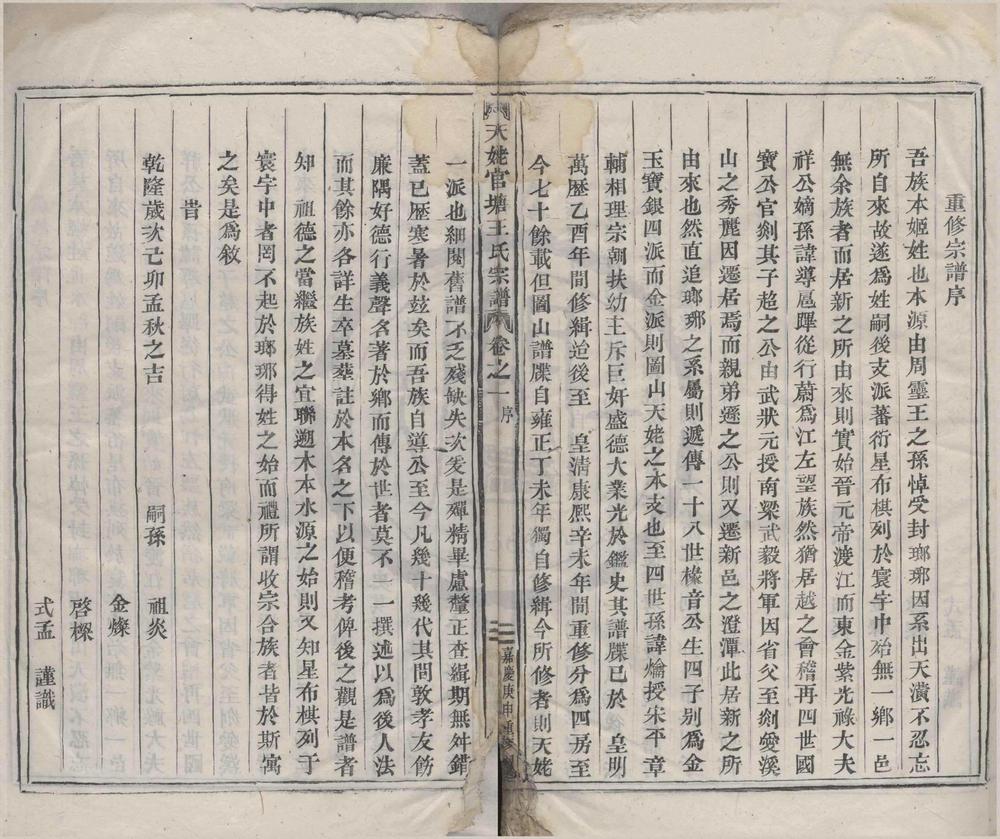 重修宗譜序
吾族本姬姓也本源由周靈王之孫悼受封瑯琊因系出天潢不忍忘
所自來故遂爲姓嗣後支派蕃衍星布棋列於寰宇中始無一鄉一邑
無余族者而居新之所由來則實始晉元帝渡江而東金紫光祿大夫
祥公嫡孫諱導扈蹕從行蔚爲江左望族然猶居越之會稽再四世國
寳公官剡其子超之公由武狀元授南梁武毅將軍因省父至剡愛溪
山之秀麗因遷居焉而親弟遜之公則又遷新邑之澄潭此居新之所
由來也然直追瑯琊之系屬則遞傳一十八世椽音公生四子别為金
玉寶銀四派而金派則圖山天姥之本支也至四世孫諱爚授宋平章
輔相理宗朝扶幼主斥巨奸盛德大業光於鑑史其譜牒已於 皇明
萬歷乙酉年間修緝迨後至 皇清康熈辛未年間重修分爲四房至
今七十餘載但圖山譜牒自雍正丁未年獨自修緝今所修者則天姥
天姥官塘王氏宗譜 卷之一 序
二 嘉慶庚申重修
一派也細閱舊譜不乏殘缺失次爰是殫精畢慮釐正查緝期無舛錯
蓋已歴寒暑於玆矣而吾族自導公至今凡幾十幾代其間敦孝友飭
廉隅好德行義聲名著於鄉而傳於世者莫不一一撰述以爲後人法
而其餘亦各詳生卒墓塟註於本名之下以便稽考俾後之觀是譜者
知 祖德之當繼族姓之宜聯遡木本水源之始則又知星布棋列于
寰宇中者罔不起於瑯琊得姓之始而禮所謂收宗合族者皆於斯寓
之矣是爲敘
昔
乾隆歲次己卯孟秋之吉 嗣孫 祖炎
金燦
啓樛
式孟 謹識